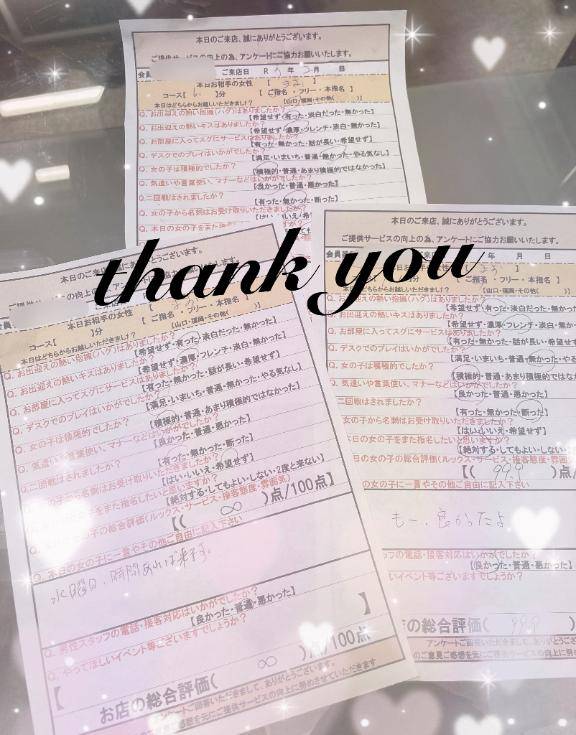 本日のご来店、誠にありがとうございます。
ご提供サービスの向上の為、アンケートにご協力お願いいたします。
ご来店日 R 年 月 日
本日お相手の女性 【 】
コース【 】分 【 ご指名 ・ フリー ・ 本指名 】
本日はどちらからお越しいただきまし?
Q. お出迎えの熱い抱擁(ハグ)はありましたか?
【希望せず・有った・淡白だった・無かった】
Q. お出迎えの熱いキスはありましたか?
【希望せず・濃厚・フレンチ・淡白・無かった】
Q. お部屋に入ってスグにサービスはありましたか?
【有った・無かった・話が長い・希望せず】
Q. デスクでのプレイはいかがでしたか?
【満足・いまいち・普通・無かった・やる気なし】
Q. 女の子は積極的でしたか?
【積極的・普通・あまり積極的ではなかった】
Q. 気遣いや言葉使い、マナーなどは
【良かった・普通・悪かった】
Q. 二回戦はされましたか?
【有った・無かった・断った】
Q. 女の子から名刺はお受け取りいただきましたか?
Q. 本日の女の子をまた指名
thank you
本日のご来店、誠にありがとうございます。
ご提供サービスの向上の為、アンケートにご協力お願い
本日お相手の女性
コース【 】分 【 ご指名 ・ フリー ・ 本指名 】
本日はどちらからお越しいただきまし? 【山口・福岡・その他( )】
Q. お出迎えの熱い抱擁(ハグ)はありましたか?
【希望せず・有った・淡白だった・無かった】
Q. お出迎えの熱いキスはありましたか?
【希望せず・濃厚・フレンチ・淡白・無かった】
Q. お部屋に入ってスグにサービスはありましたか?
【有った・無かった・話が長い・希望せず】
Q. デスクでのプレイはいかがでしたか?
【満足・いまいち・普通・無かった・やる気なし】
Q. 女の子は積極的でしたか?
【積極的・普通・あまり積極的ではなかった】
Q. 気遣いや言葉使い、マナーなどは
【良かった・普通・悪かった】
Q. 二回戦はされましたか?
【有った・無かった・断った】
Q. 女の子から名刺はお受け取りいただきましたか?
【はい・いいえ・希望せず】
をまた指名したいと思いますか?
【絶対する・してもよい・しない・2度と来ない】
の女の子の総合評価(ルックス・サービス・接客態度・雰囲気)
【( ∞ )点/100点】
Q. 本日の女の子に一言やその他ご自由に記入下さい
水曜日、時間あれば来ます。
Q. 男性スタッフの電話・接客対応はいかがでしたか?
【良かった・普通・悪かった】
Q. やってほしいイベント等ございますでしょうか?
【 】
お店の総合評価( ∞ )点/100点
アンケートご回答いただきまして、ありがとうございます。
本日のご来店、誠にありがとうございます。
ご提供サービスの向上の為、アンケートにご協力お願いいたし
年 月 日
・ フリー ・ 本指名 】
【山口・福岡・その他(
Q. お出迎えの熱い抱擁(ハグ)はありましたか?
【希望せず・有った・淡白だった・無かっ
Q. お出迎えの熱いキスはありましたか?
【希望せず・濃厚・フレンチ・淡白・無か
Q. お部屋に入ってスグにサービスは
【有った・無かった・話が長い・希望せ
Q. デスクでのプレイはいかがでしたか?
【満足・いまいち・普通・無かった・やる
女の子は積極的でしたか?
【積極的・普通・あまり積極的ではなか
気遣いや言葉使い、マナーなどは
【良かった・普通・悪かった】
二回戦はされましたか?
【有った・無かった・断った】
女の子から名刺はお受け取りいただきましたか?
【はい・いいえ・希望せず】
日の女の子をまた指名したいと思いますか?
【絶対する・してもよい・しない・2度と
の女の子の総合評価(ルックス・サービス・接客態度・雰囲
【( 99.9 )点/
の女の子に一言やその他ご自由に記入下さい
もー、良かったよ
スタッフの電話・接客対応はいかがでしたか?
【良かった・普通・悪かった】
いイベント等ございますでしょうか?
店の総合評価( 99.9 )点/10
アンケートご回答いただきまして、ありがとうございます。